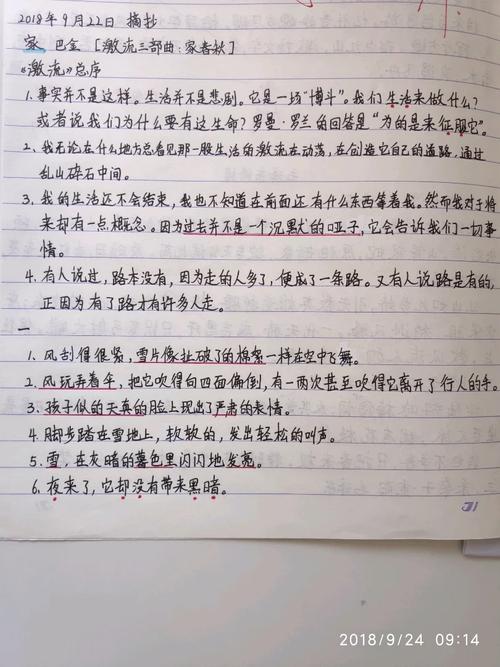 2018年9月22日 摘抄
家 巴金 [激流三部曲:家春秋]
《激流》总序
1.事实并不是这样。生活并不是悲剧。它是一场“博斗”。我们生活来做什么?
或者说我们为什么要有这生命?罗曼·罗兰的回答是“为的是来征服它”。
2.我无论在什么地方总看见那一股生活的激流在动荡,在创造它自己的道路,通过
乱山碎石中间。
3.我的生活还不会结束,我也不知道在前面还有什么东西等着我。然而我对于将
来却有一点概念。因为过去并不是一个沉默的哑子,它会告诉我们一切事
情。
4.有人说过,路本没有,因为走的人多了,便成了一条路。又有人说路是有的,
正因为有了路才有许多人走。
一
1.风刮得很紧,雪片像扯破了的棉絮一样在空中飞舞。
2.风玩弄着伞,把它吹得向四面偏倒,有一两次甚至吹得它离开了行人的手。
3.孩子似的天真的脸上现出了严肃的表情。
4.脚步踏在雪地上,软软的,发出轻松的叫声。
5.雪,在灰暗的暮色里闪闪地发亮。
6.夜来了,它却没有带来黑暗。
2018/9/24 09:14